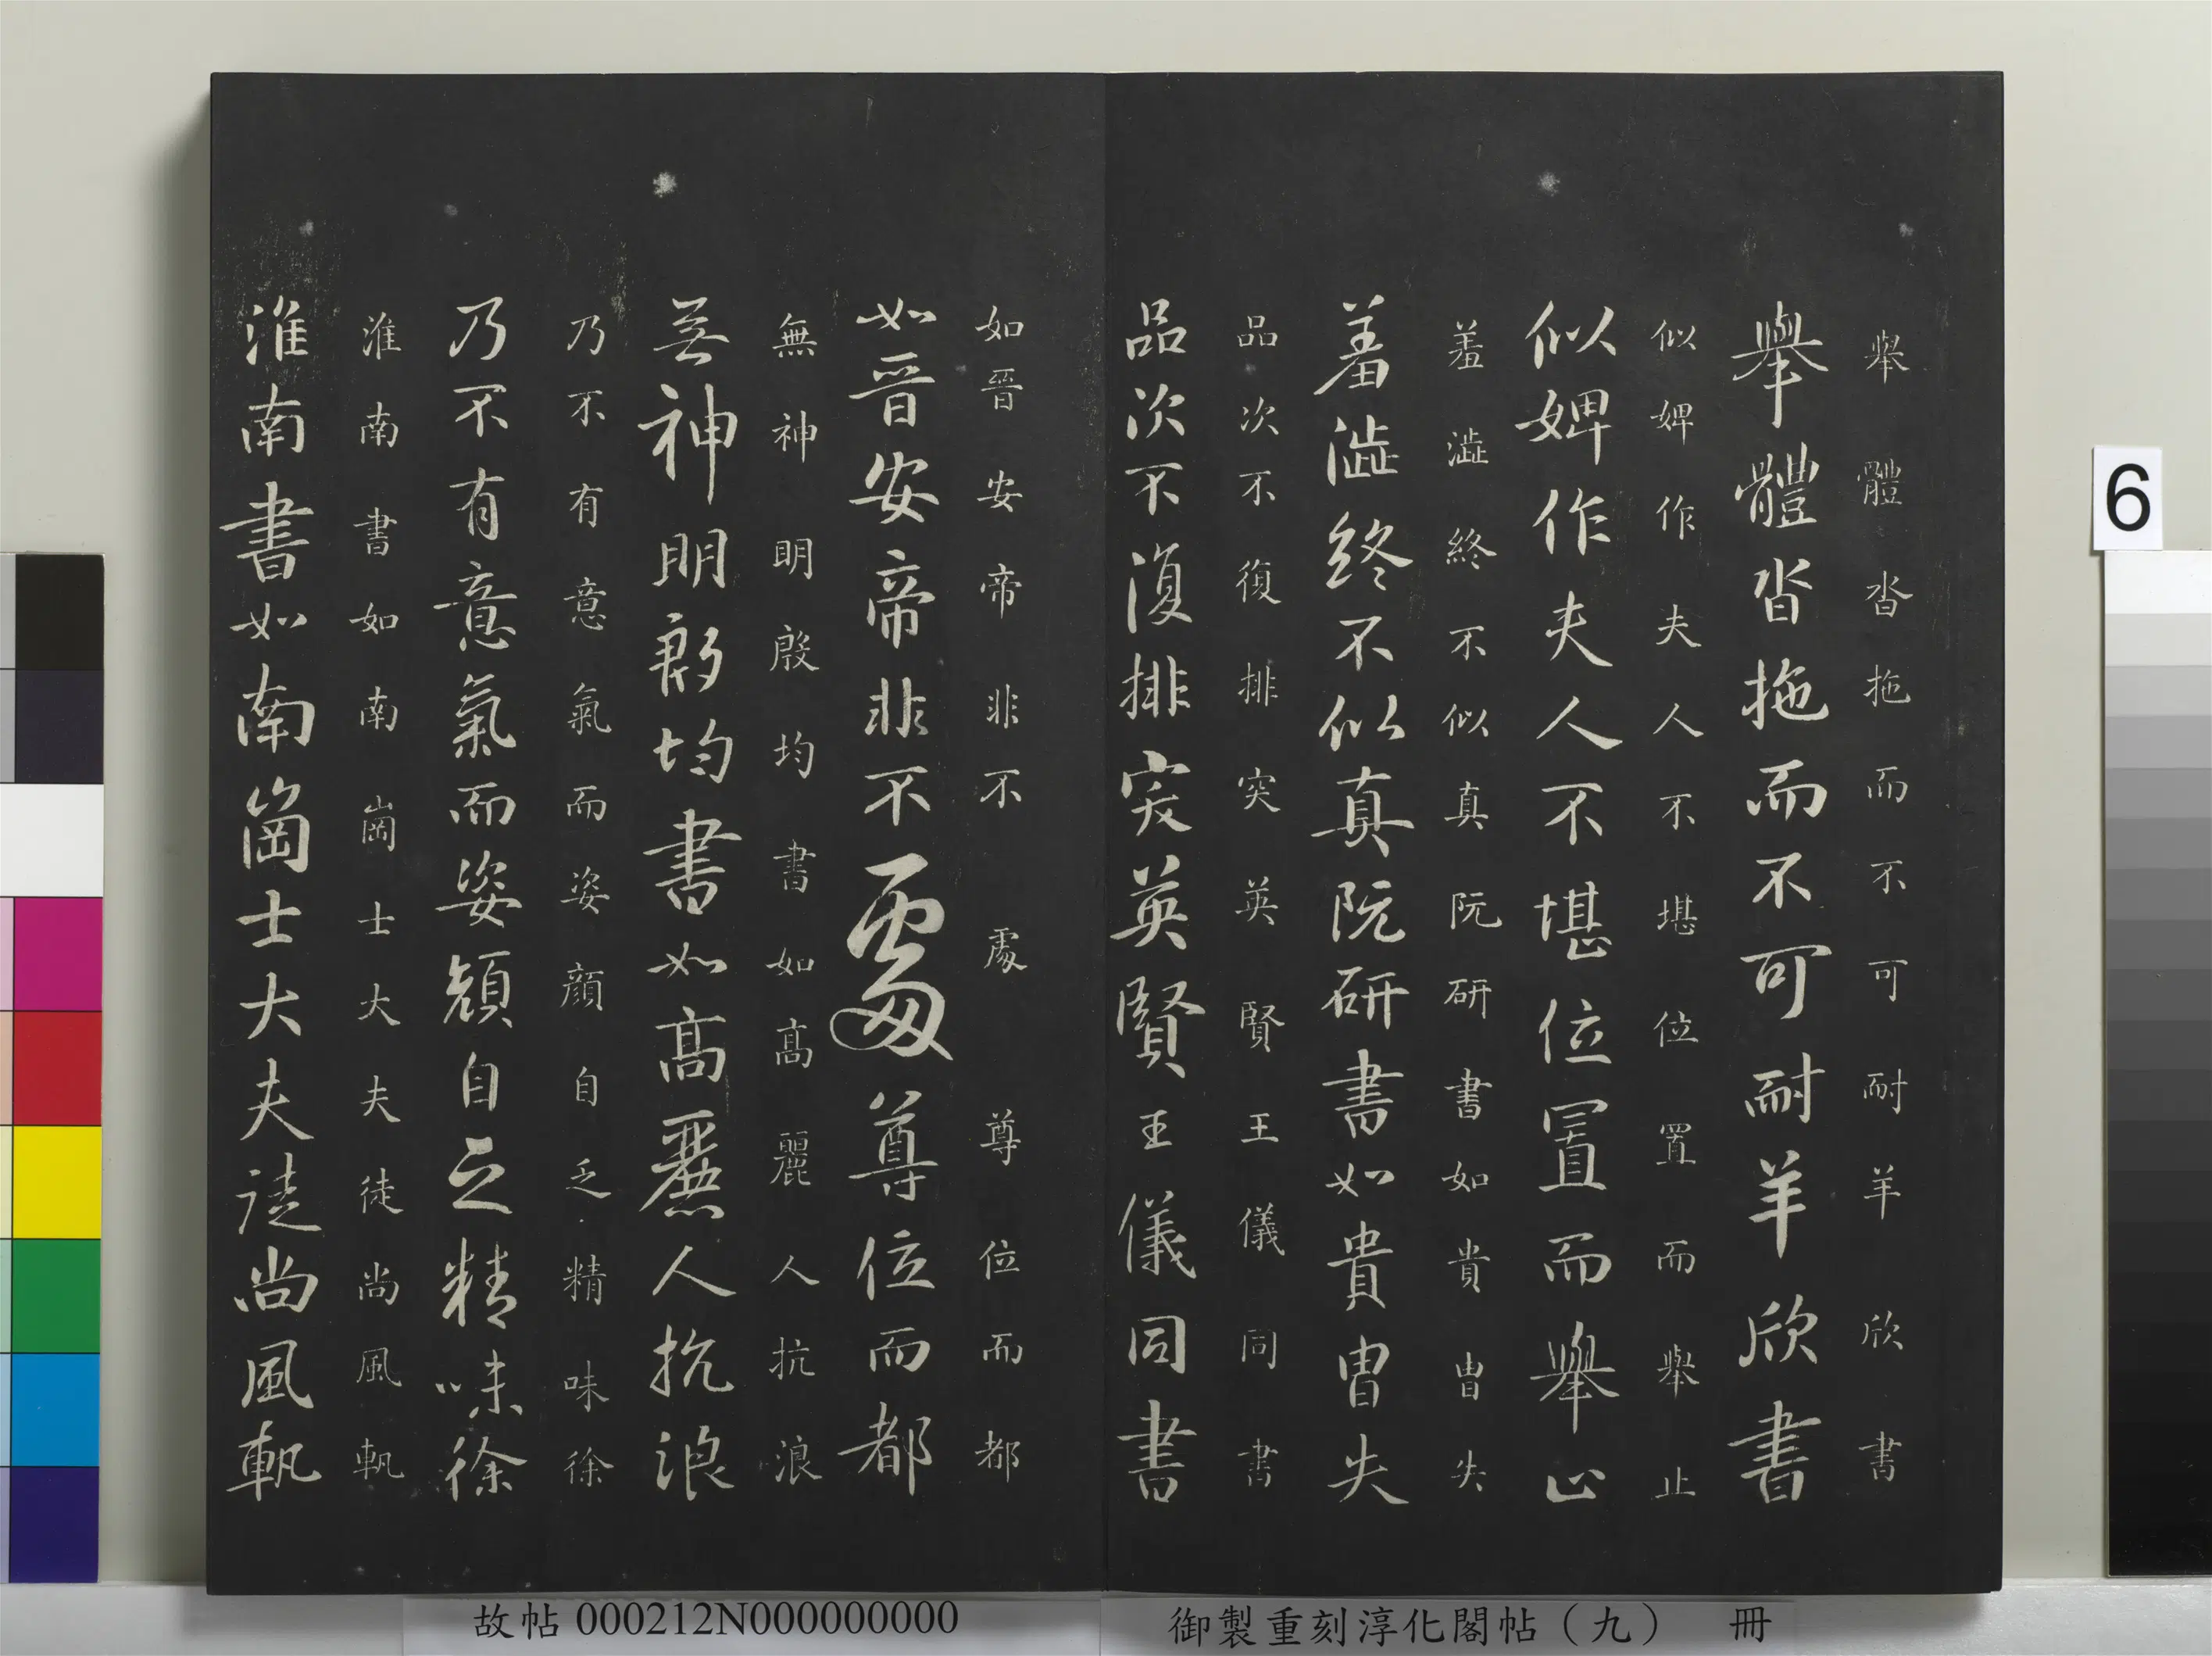 舉體沓拖而不可耐羊欣書
舉體沓拖而不可耐羊欣書
似婢作夫人不堪位置而舉止
似婢作夫人不堪位置而舉止
羞澁終不似真阮研書如貴胄失
羞澁終不似真阮研書如貴胄失
品次不復排突英賢王儀同書
品次不復排突英賢王儀同書
如晉安帝非不處尊位而都
如晉安帝非不處尊位而都
無神明殷均書如高麗人抗浪
无神明殷均書如高麗人抗浪
乃不有意氣而姿顔自乏精味徐
乃不有意氣而姿顔自乏精味徐
淮南書如南崗士大夫徒尚風軌
淮南書如南崗士大夫徒尚風軌
6
御製重刻淳化閣帖（九） 冊
故帖000212N000000000